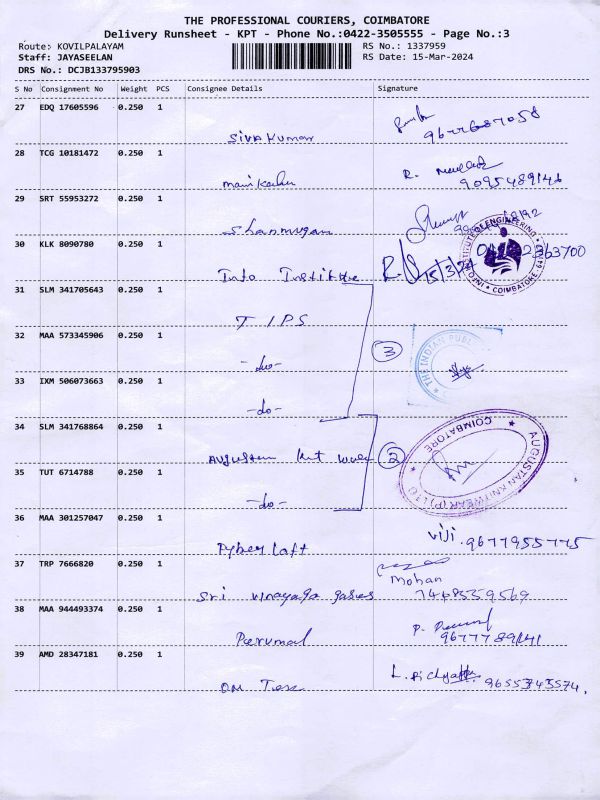 THE PROFESSIONAL COURIERS, COIMBATORE
Delivery Runsheet - KPT - Phone No.:0422-3505555 - Page No.:3
Route: KOVILPALAYAM RS No.: 1337959
Staff: JAYASEELAN RS Date: 15-Mar-2024
DRS No.: DCJB133795903
S No Consignment No Weight PCS Consignee Details Signature
27 EDQ 17605596 0.250 1
Sivakumar 9677687058
28 TCG 10181472 0.250 1 R.
Manikandan 9095489146
29 SRT 55953272 0.250 1
Shanmugam
30 KLK 8090780 0.250 1
Info Institute 15/3/24 INSTITUTE OF ENGINEERING COIMBATORE
31 SLM 341705643 0.250 1
TIPS
32 MAA 573345906 0.250 1
-do- 3 THE INDIAN PUBL
33 IXM 506073663 0.250 1
-do-
34 SLM 341768864 0.250 1
Augustan knit wear 2 AUGUSTAN KNITWEAR (P) LTD COIMBATORE
35 TUT 6714788 0.250 1
-do-
36 MAA 301257047 0.250 1 Viji
9677955775
37 TRP 7666820 0.250 1 Mohan
Sri vinayaga gases 7468559569
38 MAA 944493374 0.250 1 P.
Perumal 9677789141
39 AMD 28347181 0.250 1 L.
OM Tex 9655343574